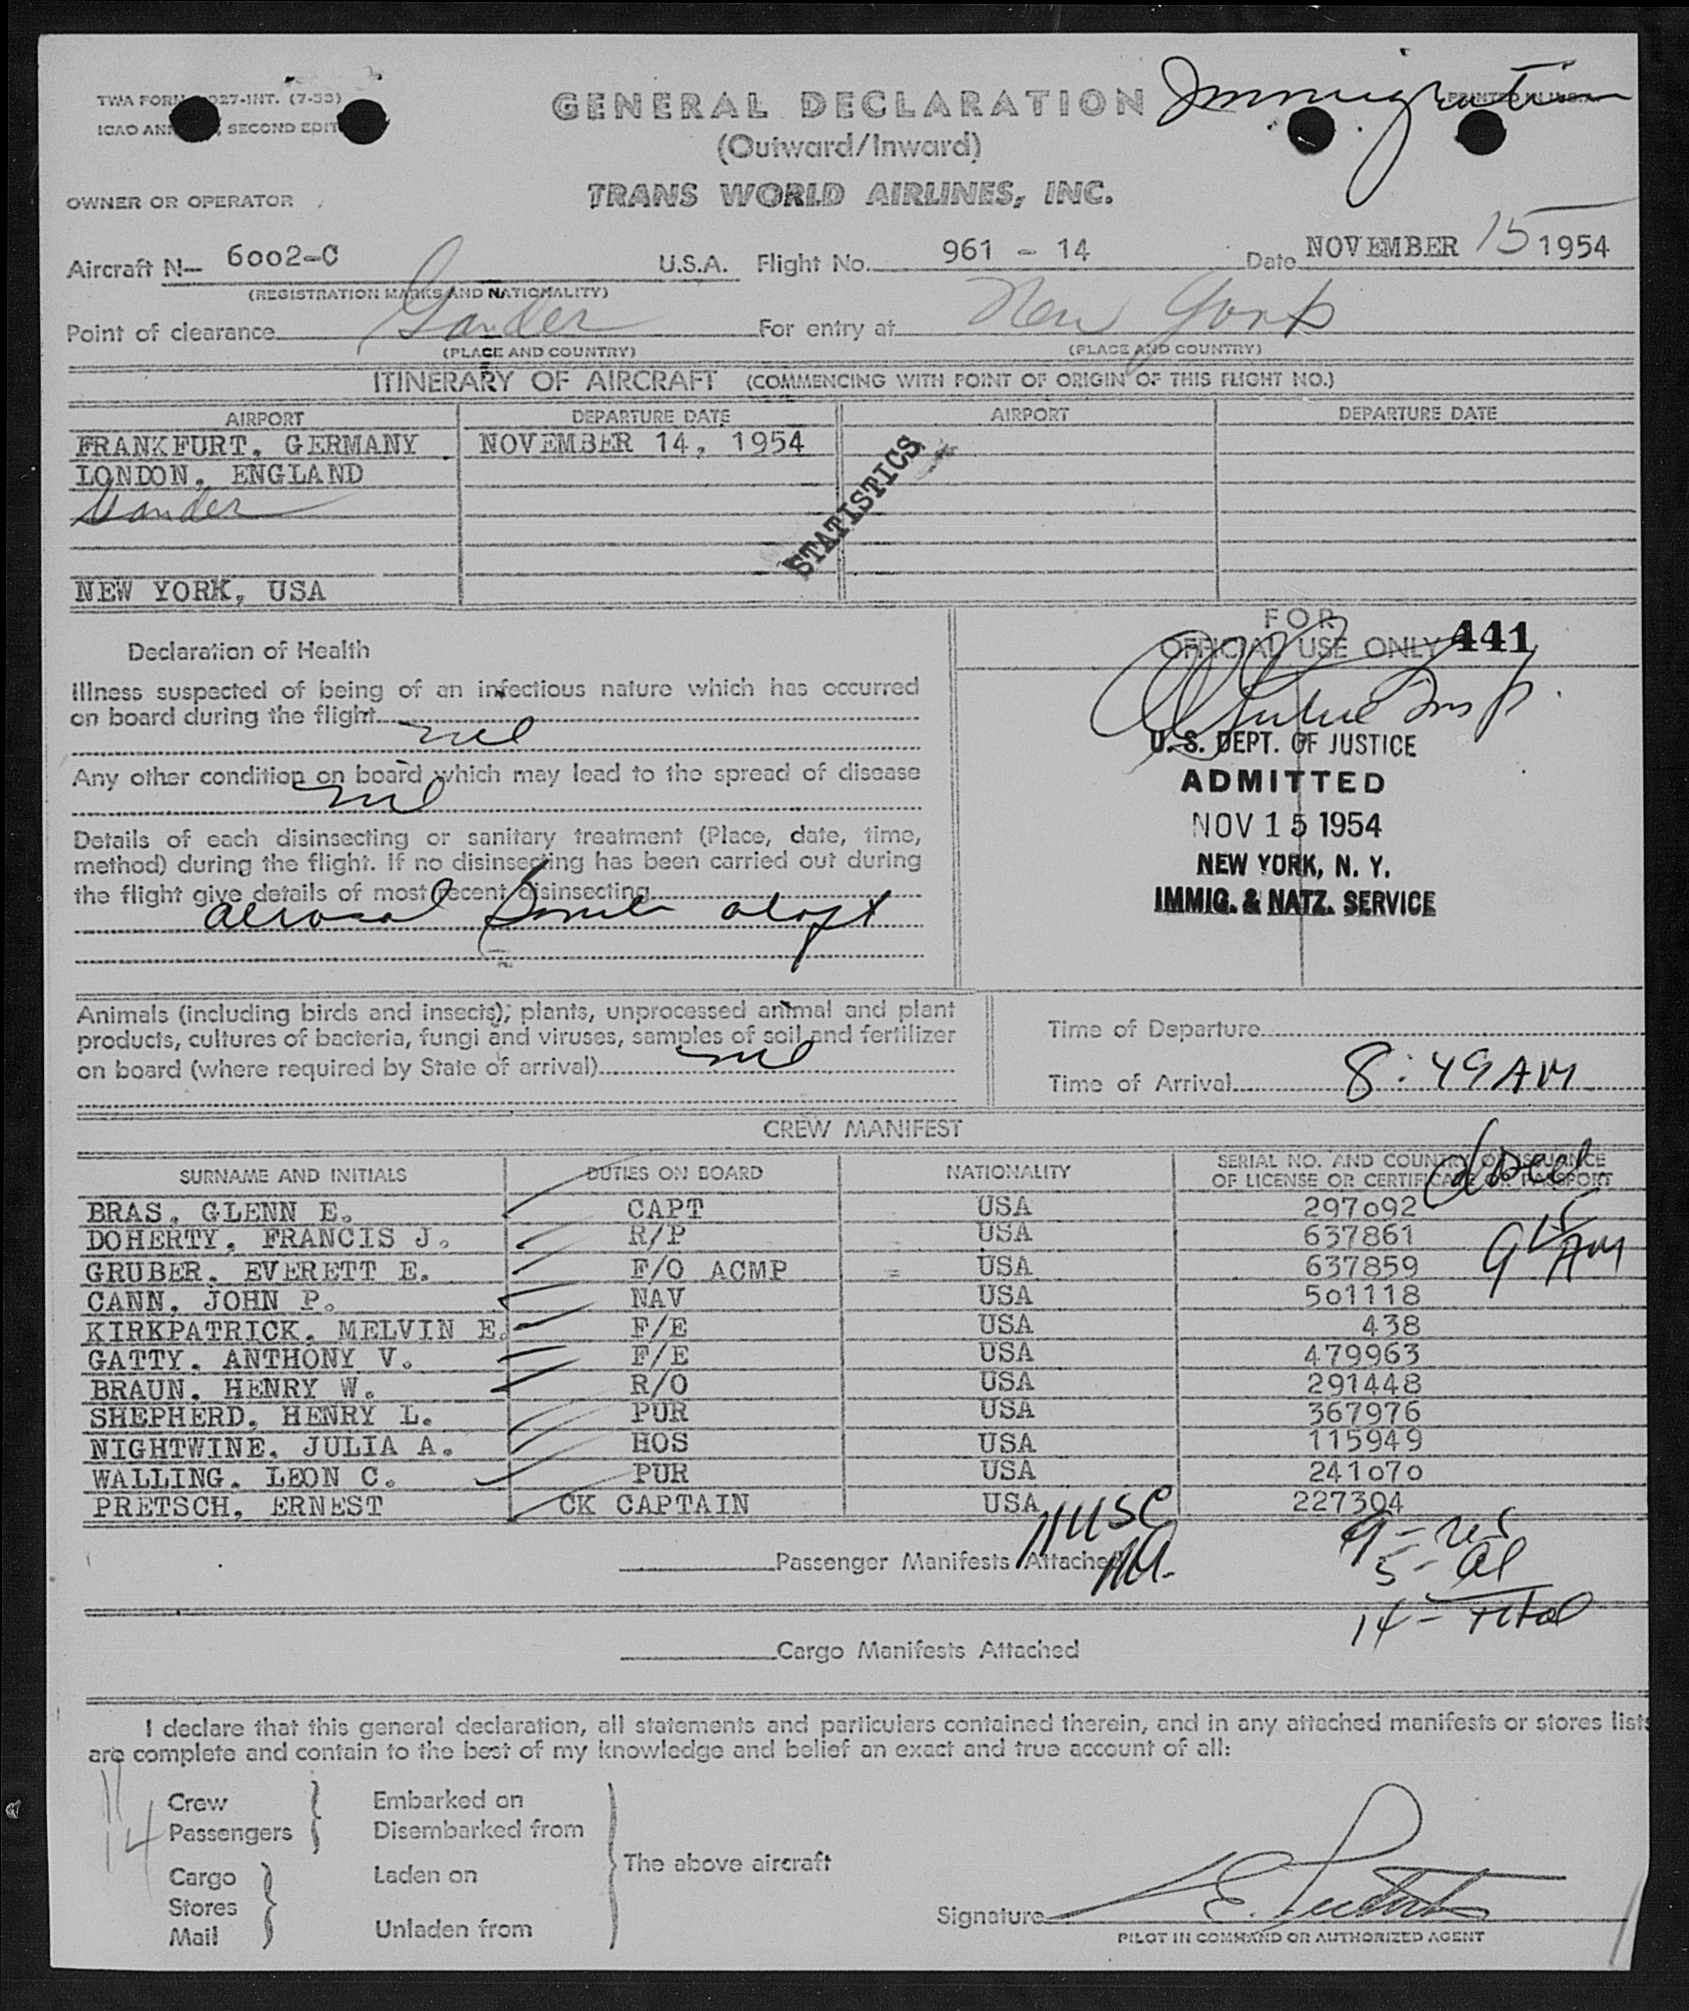 TWA FORM 027-INT. (7-53)
ICAO ANN SECOND EDIT
GENERAL DECLARATION
Immigration
(Outward/Inward)
OWNER OR OPERATOR
TRANS WORLD AIRLINES, INC.
Aircraft N- 6002-C U.S.A. Flight No. 961 - 14 Date NOVEMBER 15 1954
(REGISTRATION MARKS AND NATIONALITY)
Point of clearance Gander For entry at New York
(PLACE AND COUNTRY) (PLACE AND COUNTRY)
ITINERARY OF AIRCRAFT (COMMENCING WITH POINT OF ORIGIN OF THIS FLIGHT NO.)
AIRPORT DEPARTURE DATE AIRPORT DEPARTURE DATE
FRANKFURT, GERMANY NOVEMBER 14, 1954
LONDON, ENGLAND
Gander
STATISTICS
NEW YORK, USA
FOR
OFFICIAL USE ONLY 441
Declaration of Health
Illness suspected of being of an infectious nature which has occurred
on board during the flight
nil
Any other condition on board which may lead to the spread of disease
nil
Details of each disinsecting or sanitary treatment (Place, date, time,
method) during the flight. If no disinsecting has been carried out during
the flight give details of most recent disinsecting
aerosol bomb aloft
Insp.
U. S. DEPT. OF JUSTICE
ADMITTED
NOV 15 1954
NEW YORK, N. Y.
IMMIG. & NATZ. SERVICE
Animals (including birds and insects), plants, unprocessed animal and plant
products, cultures of bacteria, fungi and viruses, samples of soil and fertilizer
on board (where required by State of arrival) nil
Time of Departure
Time of Arrival 8:49 AM
CREW MANIFEST
SURNAME AND INITIALS DUTIES ON BOARD NATIONALITY SERIAL NO. AND COUNTRY OF ISSUANCE
OF LICENSE OR CERTIFICATE OR PASSPORT
BRAS, GLENN E. CAPT USA 297092
DOHERTY, FRANCIS J. R/P USA 637861
GRUBER, EVERETT E. F/O ACMP USA 637859
CANN, JOHN P. NAV USA 501118
KIRKPATRICK, MELVIN E. F/E USA 438
GATTY, ANTHONY V. F/E USA 479963
BRAUN, HENRY W. R/O USA 291448
SHEPHERD, HENRY L. PUR USA 367976
NIGHTWINE, JULIA A. HOS USA 115949
WALLING, LEON C. PUR USA 241070
PRETSCH, ERNEST CK CAPTAIN USA 227304
9 15 AM
11 USC
Passenger Manifests Attached
9 - USC
5 - Al
14 - Total
Cargo Manifests Attached
I declare that this general declaration, all statements and particulars contained therein, and in any attached manifests or stores lists
are complete and contain to the best of my knowledge and belief an exact and true account of all:
11
14
Crew
Passengers
Embarked on
Disembarked from
Cargo
Stores
Mail
Laden on
Unladen from
The above aircraft
Signature E. Pretsch
PILOT IN COMMAND OR AUTHORIZED AGENT